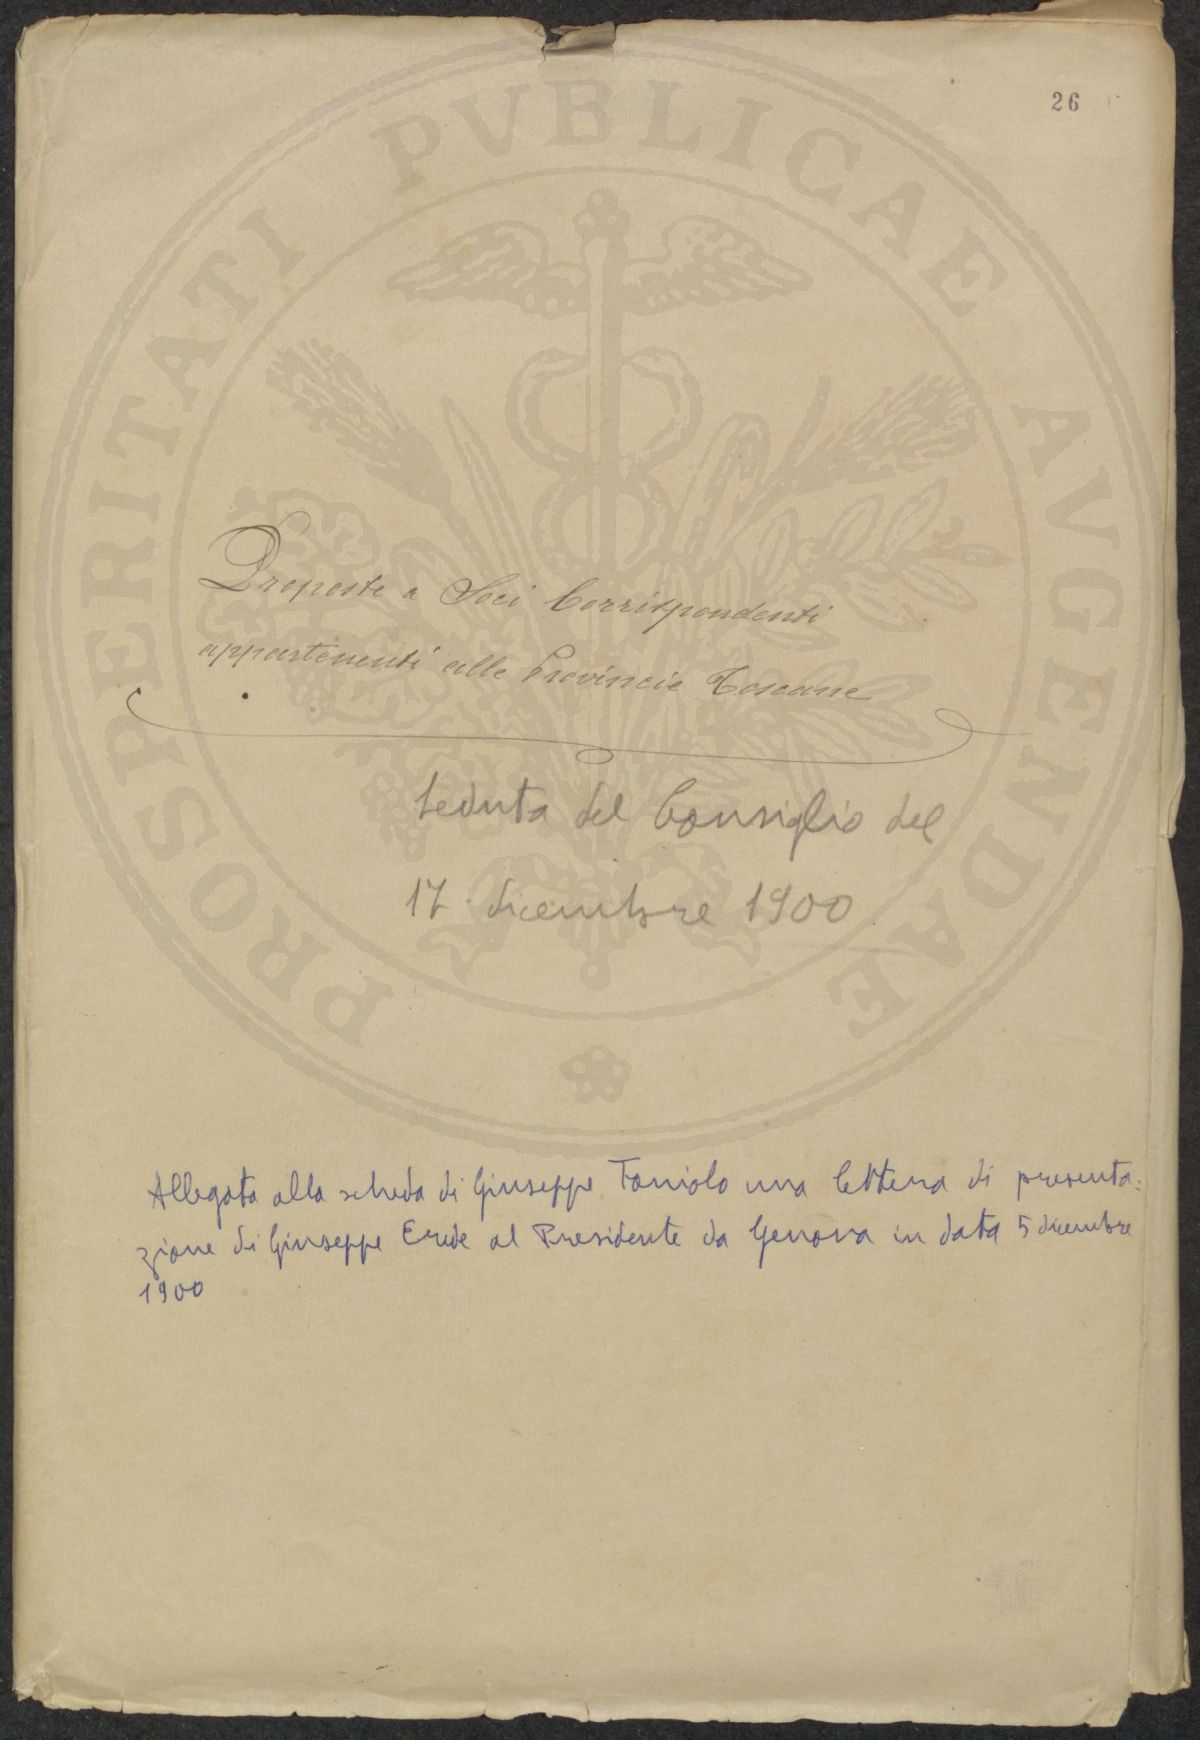 26
PROSPERITATI PVBLICAE AVGENDAE
Proposte a Soci Corrispondenti
appartenenti alle Provincie Toscane
Seduta del Consiglio del
17 dicembre 1900
Allegata alla scheda di Giuseppe Toniolo una lettera di presenta=
zione di Giuseppe Erede al Presidente da Genova in data 5 dicembre
1900